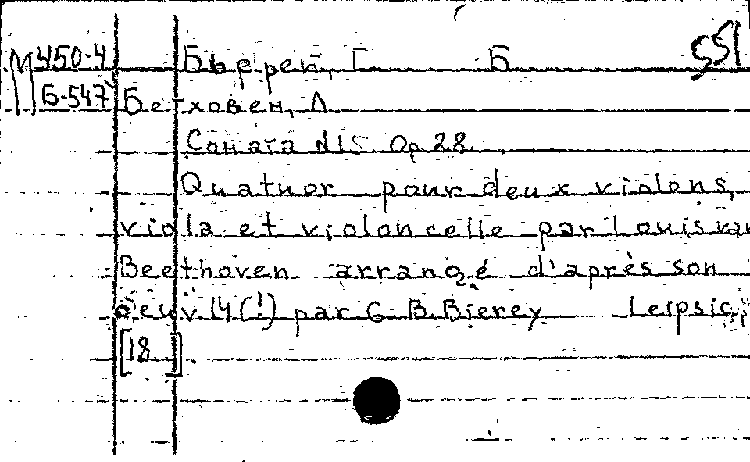 М 450-4 Бьерей, Г. Б 551
Б-547 Бетховен, Л.
Соната №15 Op. 28.
Quatuor pour deux violons,
viola et violoncelle par Louis van
Beethoven arrangé d'après son
oeuv. 14(!) par G. B. Bierey Leipsic,
[18 ]